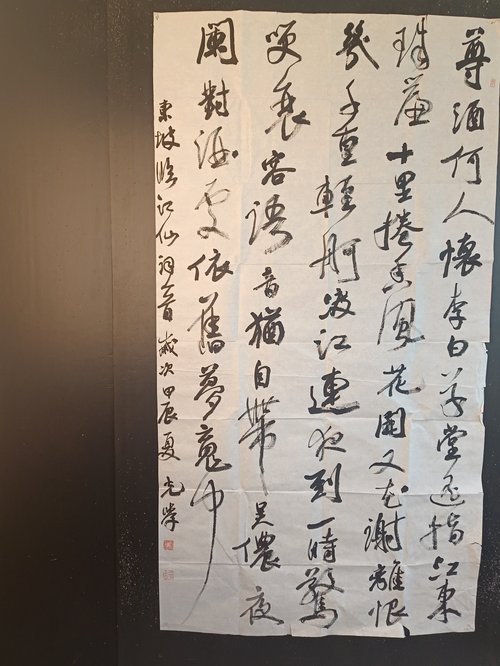 尊酒何人懷李白草堂遥指江東
珠簾十里捲香風花開又花謝離恨
幾千重輕舸渡江連夜到一時驚
笑衰容語音猶自帶吳儂夜
闌對酒處依舊夢魂中
東坡臨江仙詞一首歲次甲辰夏光